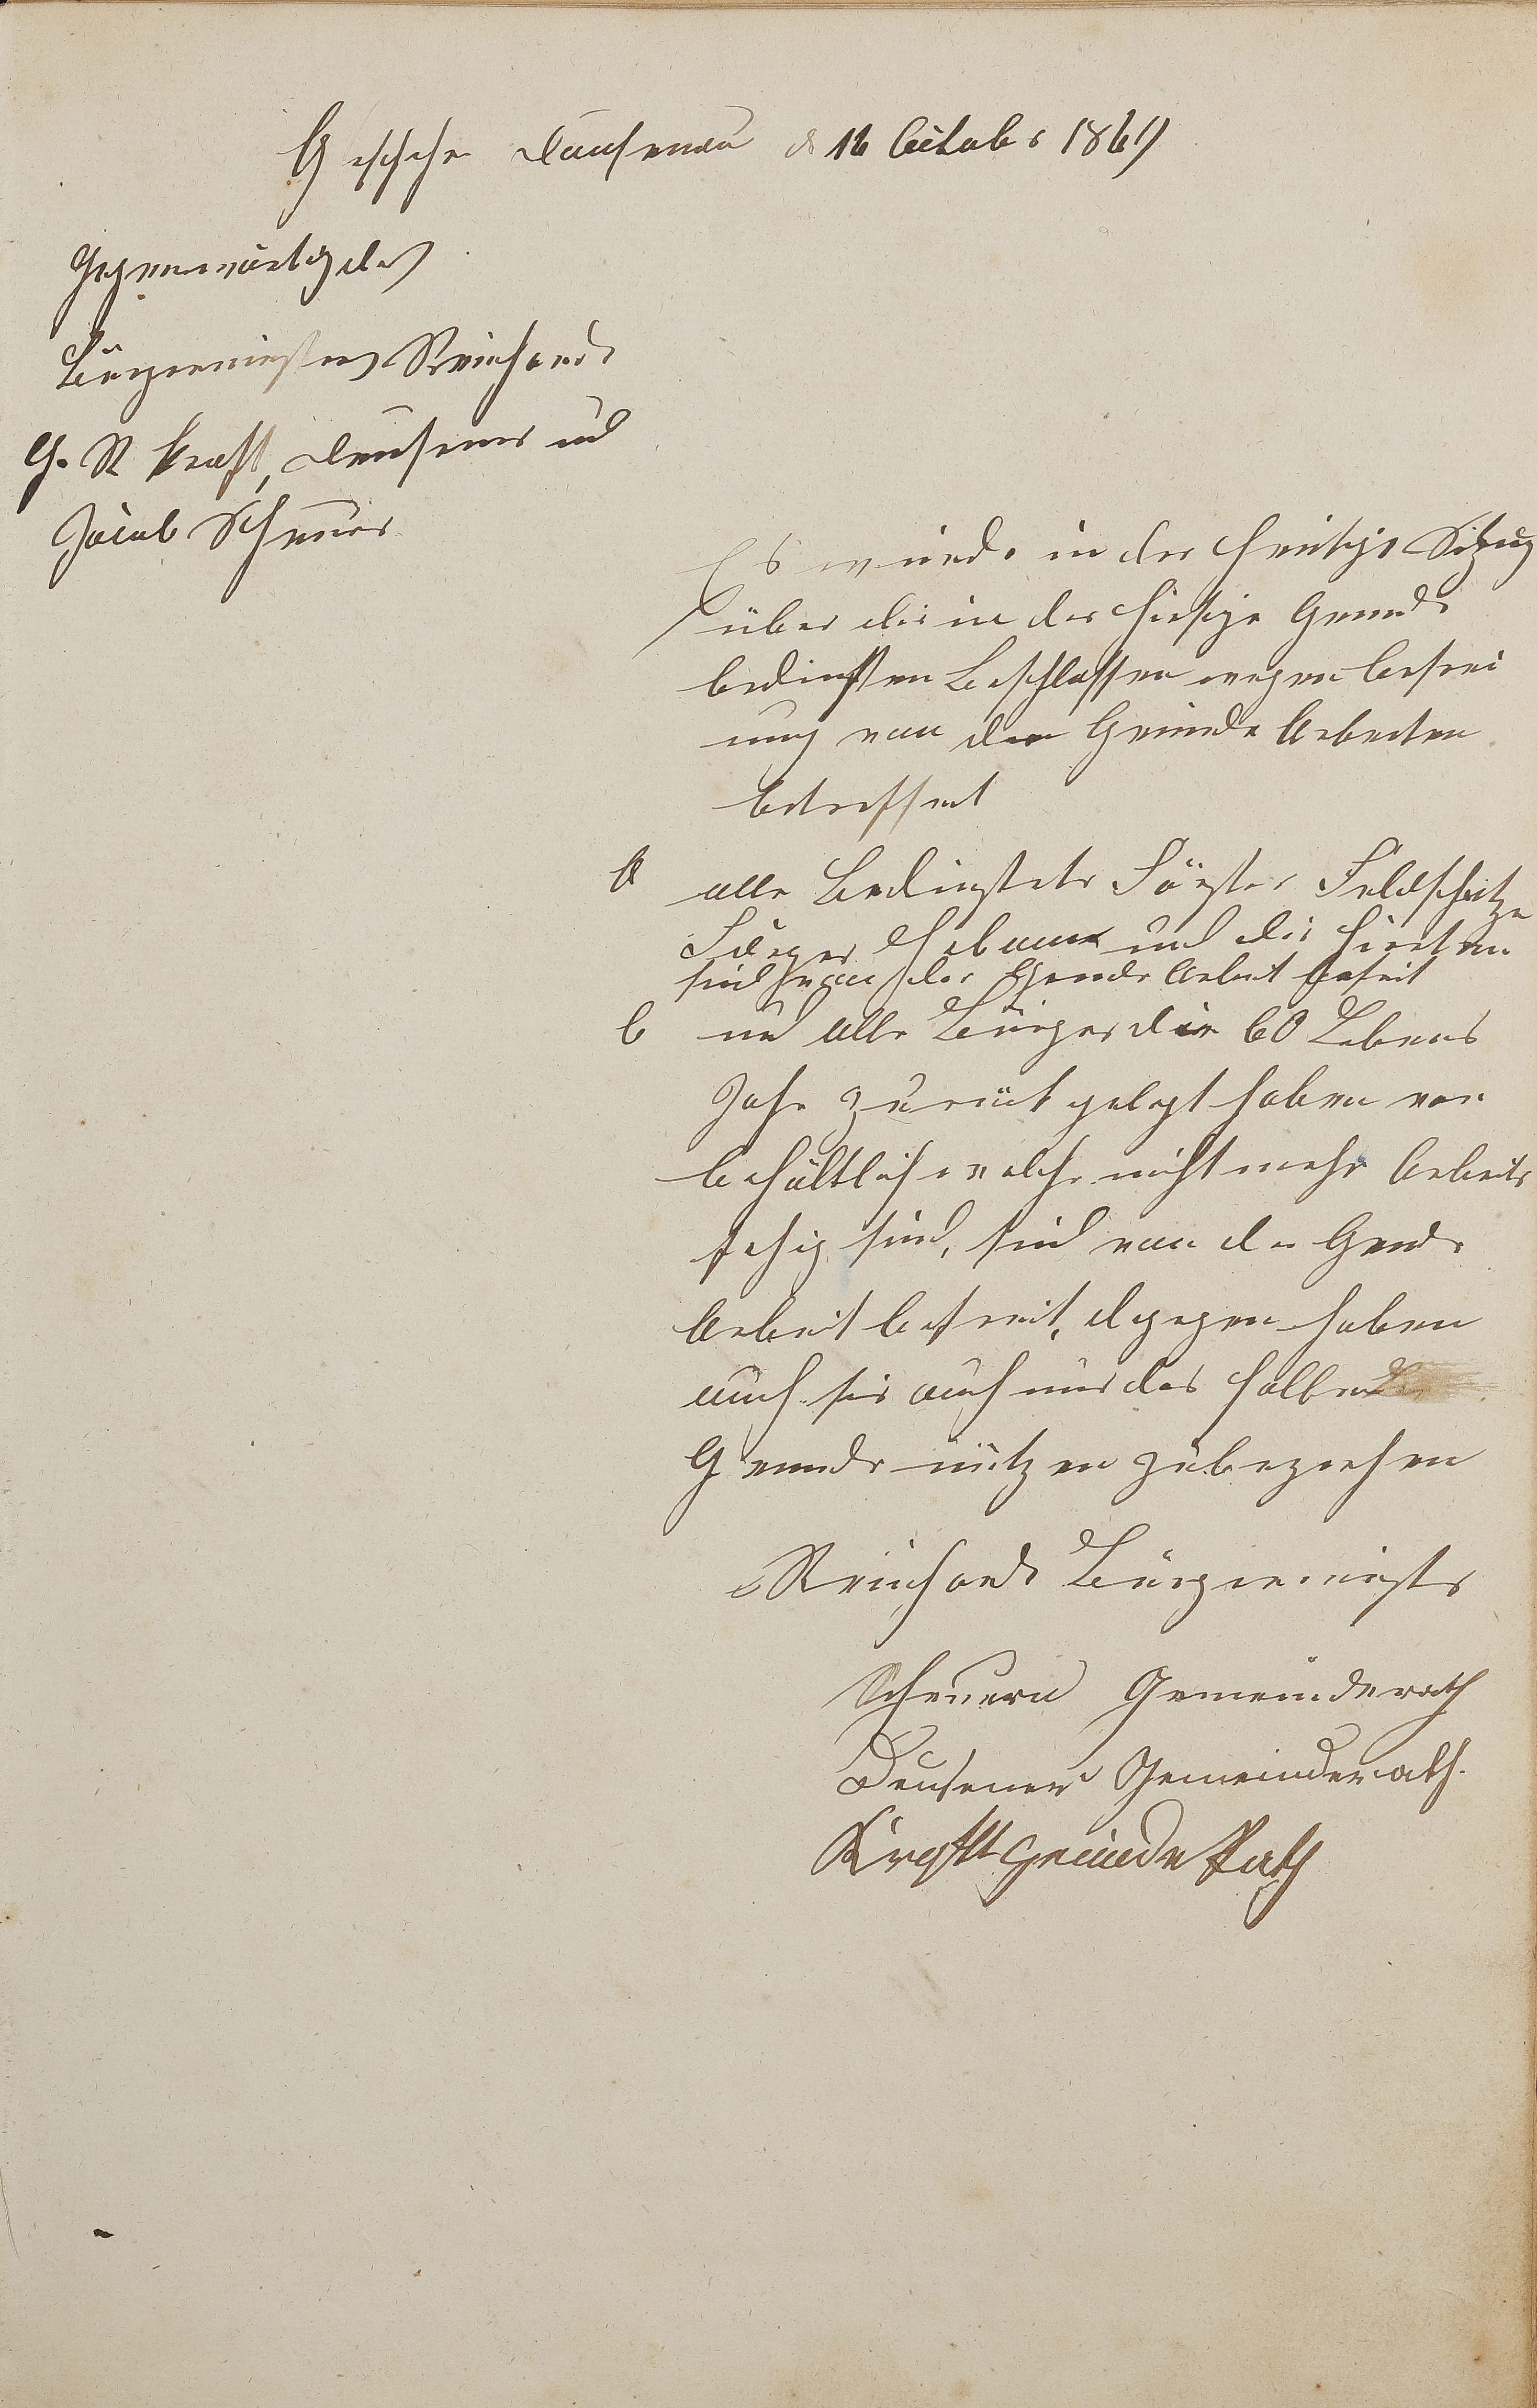 Geschehen Dausenau d 16 October 1869
Gegenwärtig der
Bürgermeister Reinhard
G. R Kraft, Deusener und
Jacob Scheuer
Es wurde in der heutige Sitzug
über die in der hiesige Gemeinde
bediensten Beschlossen wegen befrei
ung von den Gemeinde Arbeiten
betreffent
a alle Bedienstete Förster Feldschütze
Hebamme und die Hirten
sind von der Gemeinde Arbeit befreit
b und alle Bürger die 60 Lebens
Jahr zurück gelegt haben vor
behältlich welche nicht mehr Arbeits
fehig sind, sind von der Gemeinde
Arbeit befreit, dgegen haben
auch sie auch nur das halbe
Gemeinde nutzen zubeziehen
Reinhard Bürgermeister
Scheuern Gemeinderath
Deusener Gemeinderath.
Kraft Gemeinde Rath